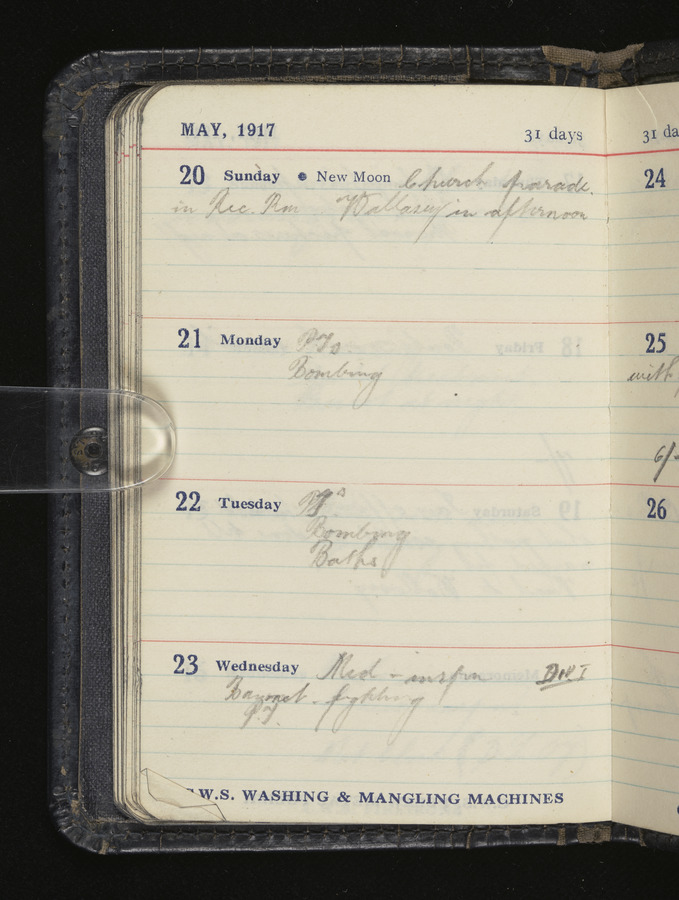 MAY, 1917 31 days
20 Sunday ● New Moon Church parade.
in Rec. Rm Wallasey in afternoon
21 Monday P.T.
Bombing
22 Tuesday
Bombing
Baths
23 Wednesday Med - inspn
Bayonet - fighting
P.T.
W.S. WASHING & MANGLING MACHINES
31 da
24
25
with
6/-
26